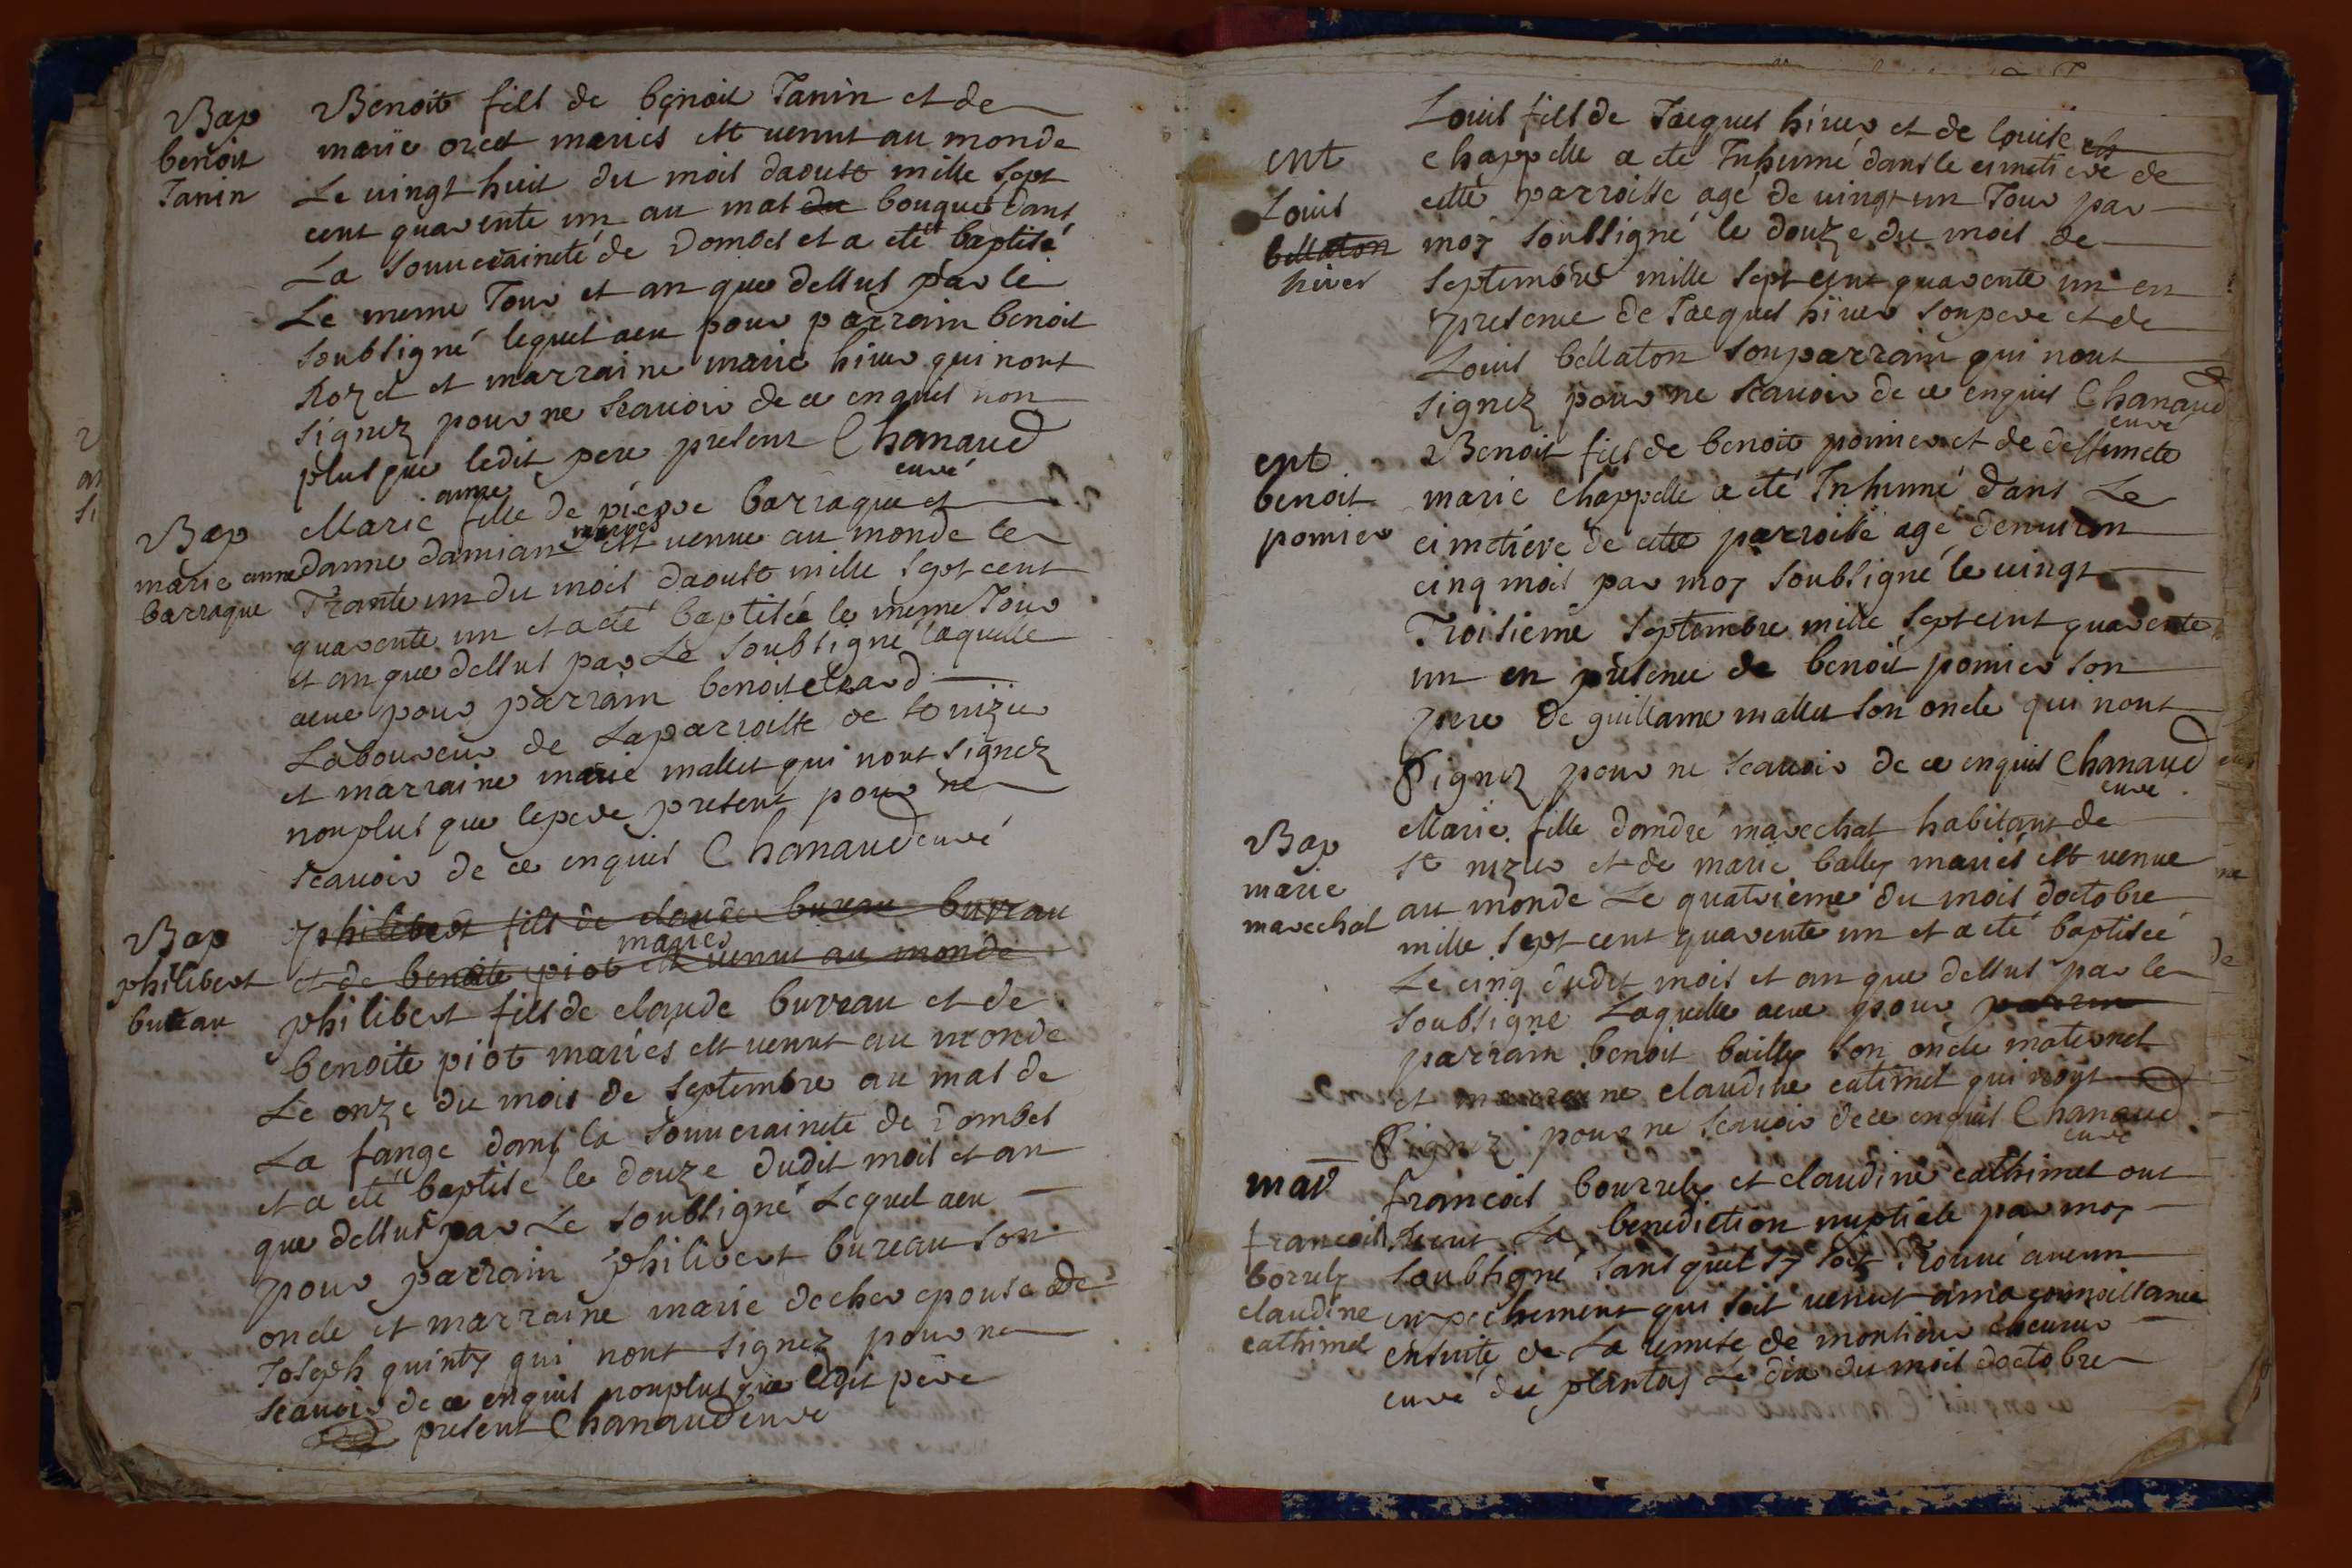 Bap
benoit
Tanin
Benoit fils de benoit Tanin et de
marie orcet mariés est venut au monde
Le vingt huit du mois daoust mille sept
cent quarente un au mas du bouquet dans
La souveraineté de Dombes et a eté baptisé
Le meme Jour et an que dessus par le
soubsigné lequel aeu pour parrain benoit
Rozet et marraine marie hiver qui nont
signez pour ne scavoir de ce enquis non
plus que ledit pere present Chanaud
curé
Bap
marie anne
barraque
Marie anne fille de pierre barraque et
danne damians mariés est venue au monde le
Trante un du mois daoust mille sept cent
quarente un et a eté baptisée le meme Jour
et an que dessus par Le soubsigné laquelle
aeue pour parrain benoit
Laboureur de Laparroisse de st nizier
et marraine marie mallet qui nont signez
nonplus que lepere present pour ne
scavoir de ce enquis Chanaud curé
Bap
philibert
bureau
philibert fils de claude bureau burrau
et de benoite piot mariés est venut au monde
philibert fils de claude burrau et de
benoite piot mariés est venut au monde
Le onze du mois de septembre au mas de
La fange dans la souveraineté de Dombes
et a eté baptisé le douze dudit mois et an
que dessus par Le soubsigné Lequel aeu
pour parrain philibert bureau son
oncle et marraine marie decher epouse de
Joseph quinty qui nont signez pour ne
scavoir de ce enquis nonplus que ledit pere
present Chanaud curé
ent
Louis
bellaton
hiver
Louis fils de Jacques hiver et de louise
chappelle a eté Inhumé dans le cimetiere de
cette parroisse agé de vingt un Jour par
moy soubsigné le douze du mois de
septembre mille sept cent quarente un en
presence de Jacques hiver sonpere et de
Louis bellaton sonparrain qui nont
signez pour ne scavoir de ce enquis Chanaud
curé
ent
benoit
pomier
Benoit fils de benoit pomier et de deffuncte
marie chappelle a eté Inhumé dans Le
cimetiere de cette parroisse agé denviron
cinq mois par moy soubsigné le vingt
Troisieme septembre mille sept cent quarente
un en presence de benoit pomier son
pere de guillaume mallet son oncle qui nont
signez pour ne scavoir de ce enquis Chanaud
curé
Bap
marie
marechal
Marie fille dandré marechal habitant de
st nizier et de marie bally mariés est venue
au monde Le quatrieme du mois doctobre
mille sept cent quarente un et a eté baptisée
Le cinq dudit mois et an que dessus par le
soubsigné Laquelle aeue pour parrin
parrain benoit bailly son oncle maternel
et marraine claudine catimel qui nont
signez pour ne scavoir de ce enquis Chanaud
curé
mar
francois
borrely
claudine
cathimel
francois bourrely et claudine cathimel ont
Recut La benediction nuptiale par moy
soubsigné sans quil sy soit Trouvé aucun
enpechement qui soit venut ama connoissance
ensuite de La remise de monsieur
curé du plantay Le dix du mois doctobre